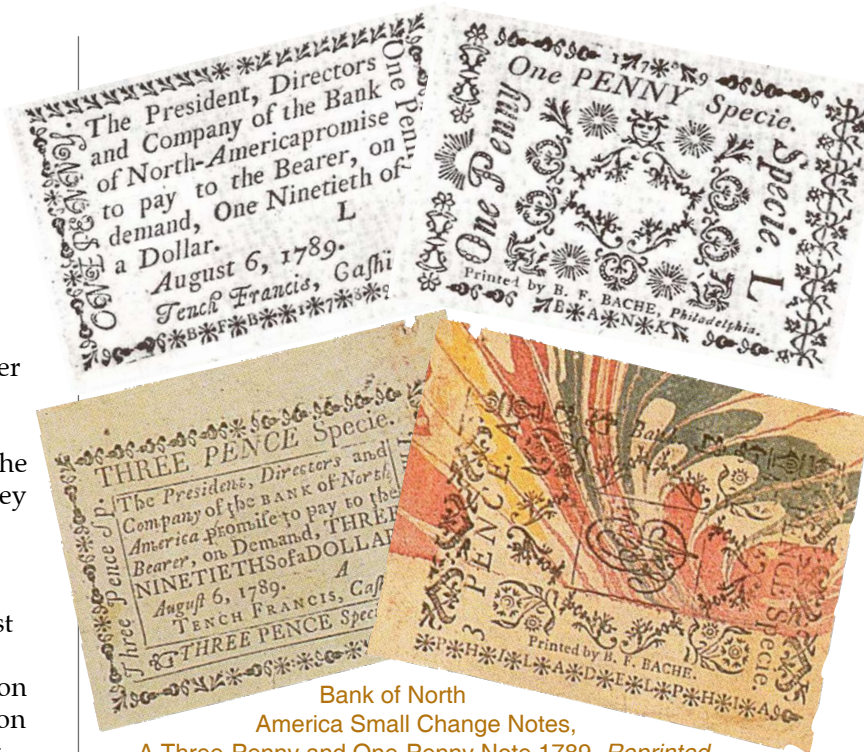 The President, Directors
and Company of the Bank
of North-Americapromise
to pay to the Bearer, on
demand, One Ninetieth of
a Dollar.
L
August 6, 1789.
Tench Francis, Caſhi
B F B 1 7 8 9
One Penny
1 7 8 9
One PENNY Specie.
One Penny
Specie. L
Printed by B. F. BACHE, Philadelphia.
B A N K
THREE PENCE Specie.
Three Pence Sp.
The President, Directors and
Company of the BANK of North
America promiſe to pay to the
Bearer, on Demand, THREE
NINETIETHS of a DOLLAR
A
Auguſt 6, 1789.
TENCH FRANCIS, Caſh
THREE PENCE Speci
Bank
3 PENCE. A
PENCE Specie.
Printed by B. F. BACHE.
P H I L A D E L P H I A
er
he
ey
st
on
on
Bank of North
America Small Change Notes,
A Three-Penny and One-Penny Note 1789. Reprinted